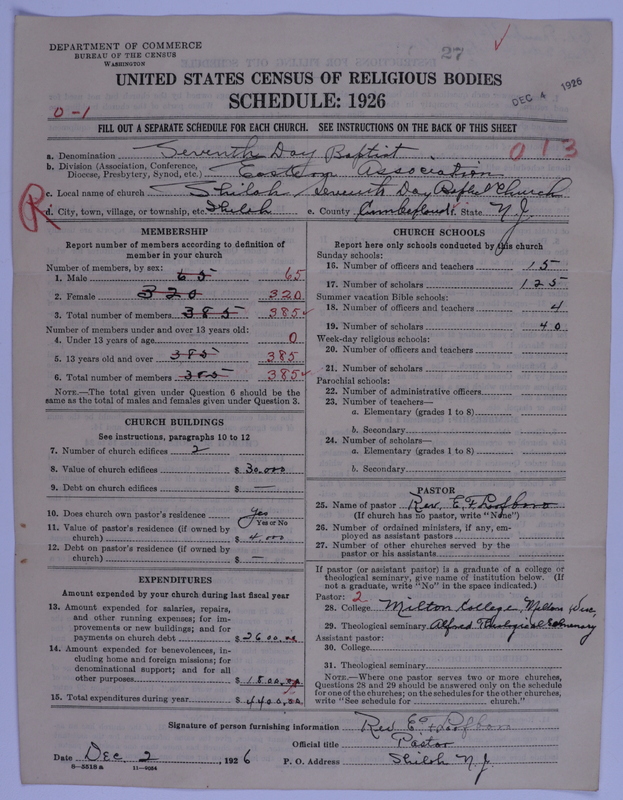 27
DEPARTMENT OF COMMERCE
BUREAU OF THE CENSUS
WASHINGTON
UNITED STATES CENSUS OF RELIGIOUS BODIES
SCHEDULE: 1926
DEC 4 1926
0-1
FILL OUT A SEPARATE SCHEDULE FOR EACH CHURCH. SEE INSTRUCTIONS ON THE BACK OF THIS SHEET
a. Denomination Seventh Day Baptist 013
b. Division (Association, Conference, Diocese, Presbytery, Synod, etc.) Eastern Association
c. Local name of church Shiloh Seventh Day Baptist Church
R
d. City, town, village, or township, etc. Shiloh e. County Cumberland f. State N.J.
MEMBERSHIP
Report number of members according to definition of
member in your church
Number of members, by sex:
1. Male 65 65
2. Female 320 320
3. Total number of members 385 385
Number of members under and over 13 years old:
4. Under 13 years of age 0
5. 13 years old and over 385 385
6. Total number of members 385 385
NOTE.—The total given under Question 6 should be
same as the total of males and females given under Question 3.
CHURCH BUILDINGS
See instructions, paragraphs 10 to 12
7. Number of church edifices 2
8. Value of church edifices $ 30.000
9. Debt on church edifices $ —
10. Does church own pastor's residence yes
Yes or No
11. Value of pastor's residence (if owned by
church) $ 4.000
12. Debt on pastor's residence (if owned by
church) $ —
EXPENDITURES
Amount expended by your church during last fiscal year
13. Amount expended for salaries, repairs,
and other running expenses; for im-
provements or new buildings; and for
payments on church debt $ 2600.00
14. Amount expended for benevolences, in-
cluding home and foreign missions; for
denominational support; and for all
other purposes $ 1800.00
15. Total expenditures during year $ 4400.00
CHURCH SCHOOLS
Report here only schools conducted by this church
Sunday schools:
16. Number of officers and teachers 15
17. Number of scholars 125
Summer vacation Bible schools:
18. Number of officers and teachers 4
19. Number of scholars 40
Week-day religious schools:
20. Number of officers and teachers
21. Number of scholars
Parochial schools:
22. Number of administrative officers
23. Number of teachers—
a. Elementary (grades 1 to 8)
b. Secondary
24. Number of scholars—
a. Elementary (grades 1 to 8)
b. Secondary
PASTOR
25. Name of pastor Rev. E F Loofboro
(If church has no pastor, write "None")
26. Number of ordained ministers, if any, em-
ployed as assistant pastors
27. Number of other churches served by the
pastor or his assistants
If pastor (or assistant pastor) is a graduate of a college or
theological seminary, give name of institution below. (If
not a graduate, write "No" in the space indicated.)
Pastor: 2
28. College Milton College, Milton Wisc.
29. Theological seminary Alfred Theological Seminary
Assistant pastor:
30. College
31. Theological seminary
NOTE.—Where one pastor serves two or more churches,
Questions 28 and 29 should be answered only on the schedule
for one of the churches; on the schedules for the other churches,
write "See schedule for church."
Signature of person furnishing information Rev E F Loofboro
Official title Pastor
Date Dec 2, 1926 P. O. Address Shiloh N.J.
8—5518 a 11—9054